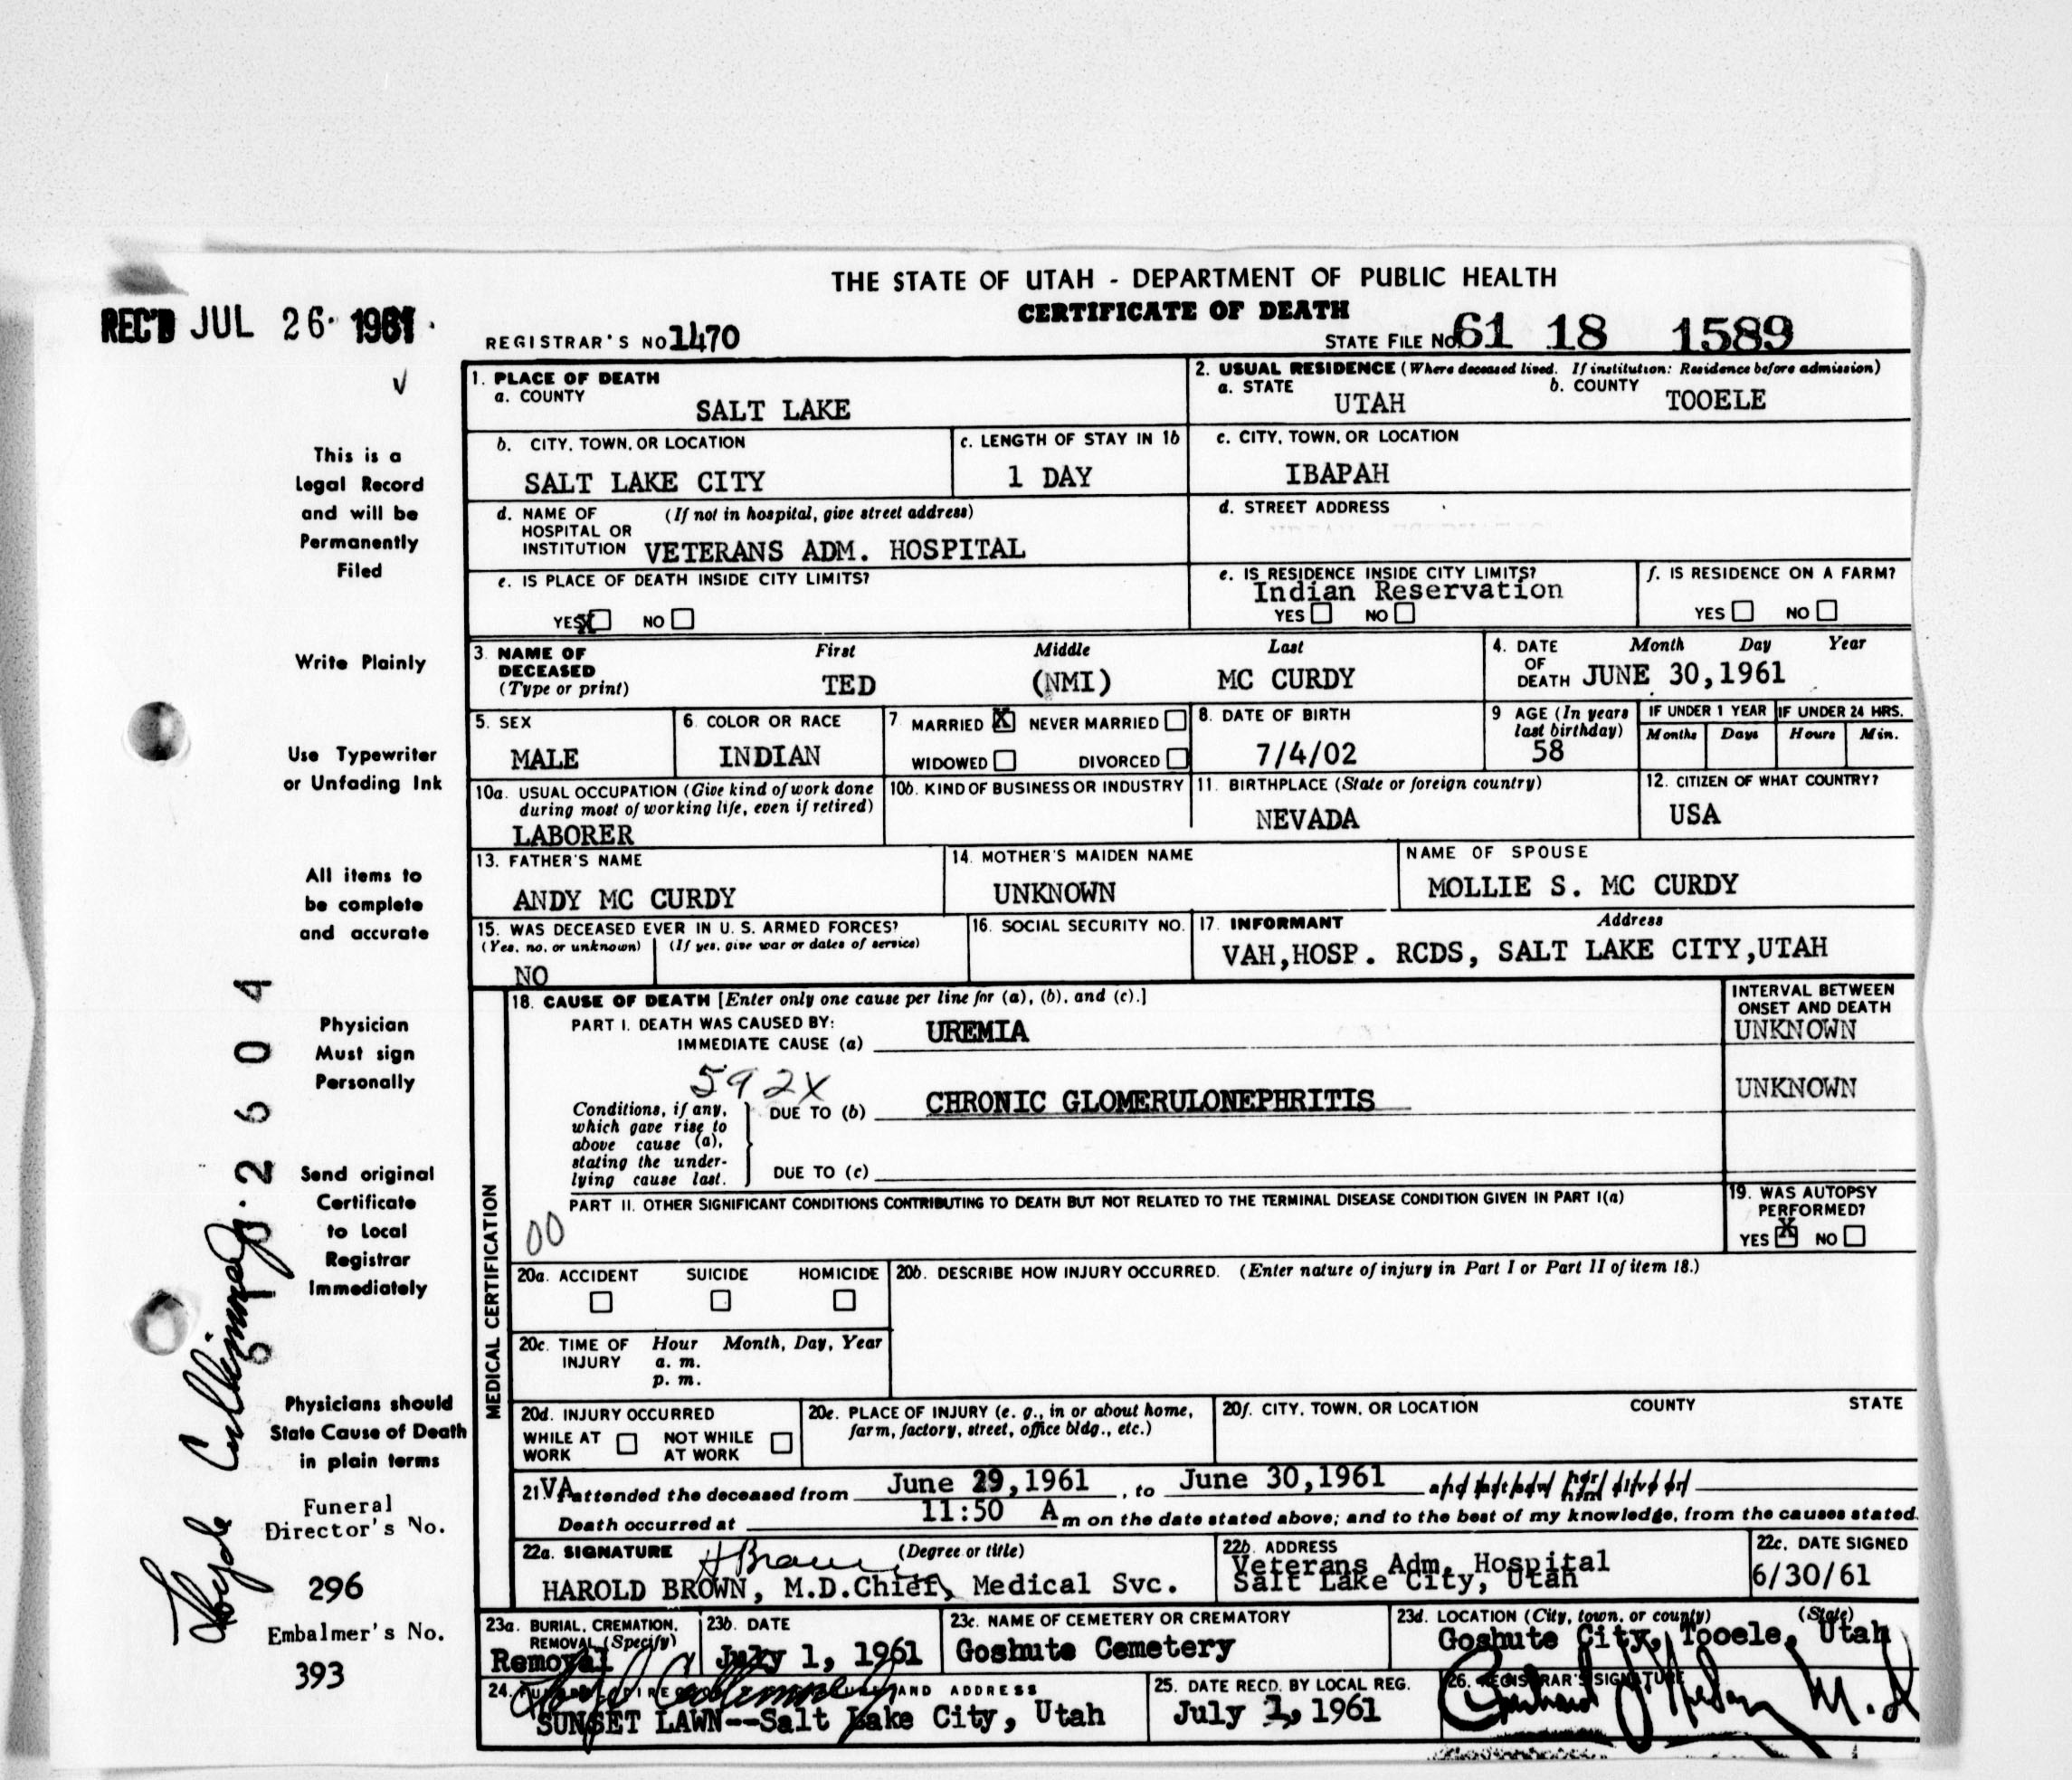 THE STATE OF UTAH - DEPARTMENT OF PUBLIC HEALTH
CERTIFICATE OF DEATH
REC'D JUL 26 1961
REGISTRAR'S NO 1470
STATE FILE NO. 61 18 1589
1. PLACE OF DEATH
a. COUNTY
SALT LAKE
2. USUAL RESIDENCE (Where deceased lived. If institution: Residence before admission)
a. STATE UTAH b. COUNTY TOOELE
b. CITY, TOWN, OR LOCATION
SALT LAKE CITY
c. LENGTH OF STAY IN 1b
1 DAY
c. CITY, TOWN, OR LOCATION
IBAPAH
d. NAME OF (If not in hospital, give street address)
HOSPITAL OR
INSTITUTION VETERANS ADM. HOSPITAL
d. STREET ADDRESS
e. IS PLACE OF DEATH INSIDE CITY LIMITS?
YES X NO
e. IS RESIDENCE INSIDE CITY LIMITS?
Indian Reservation
YES NO
f. IS RESIDENCE ON A FARM?
YES NO
3. NAME OF DECEASED (Type or print)
First Middle Last
TED (NMI) MC CURDY
4. DATE OF DEATH Month Day Year
JUNE 30,1961
5. SEX
MALE
6. COLOR OR RACE
INDIAN
7. MARRIED X NEVER MARRIED
WIDOWED DIVORCED
8. DATE OF BIRTH
7/4/02
9 AGE (In years last birthday)
58
IF UNDER 1 YEAR IF UNDER 24 HRS.
Months Days Hours Min.
10a. USUAL OCCUPATION (Give kind of work done
during most of working life, even if retired)
LABORER
10b. KIND OF BUSINESS OR INDUSTRY
11. BIRTHPLACE (State or foreign country)
NEVADA
12. CITIZEN OF WHAT COUNTRY?
USA
13. FATHER'S NAME
ANDY MC CURDY
14. MOTHER'S MAIDEN NAME
UNKNOWN
NAME OF SPOUSE
MOLLIE S. MC CURDY
15. WAS DECEASED EVER IN U. S. ARMED FORCES?
(Yes, no, or unknown) (If yes, give war or dates of service)
NO
16. SOCIAL SECURITY NO.
17. INFORMANT Address
VAH,HOSP. RCDS, SALT LAKE CITY,UTAH
MEDICAL CERTIFICATION
18. CAUSE OF DEATH [Enter only one cause per line for (a), (b), and (c).]
PART I. DEATH WAS CAUSED BY:
IMMEDIATE CAUSE (a) UREMIA
INTERVAL BETWEEN
ONSET AND DEATH
UNKNOWN
592X
Conditions, if any,
which gave rise to
above cause (a),
stating the under-
lying cause last.
DUE TO (b) CHRONIC GLOMERULONEPHRITIS
UNKNOWN
DUE TO (c)
PART II. OTHER SIGNIFICANT CONDITIONS CONTRIBUTING TO DEATH BUT NOT RELATED TO THE TERMINAL DISEASE CONDITION GIVEN IN PART I(a)
00
19. WAS AUTOPSY
PERFORMED?
YES X NO
20a. ACCIDENT SUICIDE HOMICIDE
20b. DESCRIBE HOW INJURY OCCURRED. (Enter nature of injury in Part I or Part II of item 18.)
20c. TIME OF INJURY Hour Month, Day, Year
a. m.
p. m.
20d. INJURY OCCURRED
WHILE AT WORK NOT WHILE AT WORK
20e. PLACE OF INJURY (e. g., in or about home,
farm, factory, street, office bldg., etc.)
20f. CITY, TOWN, OR LOCATION COUNTY STATE
21. VA attended the deceased from June 29,1961, to June 30,1961 and last saw her him alive on
Death occurred at 11:50 A m on the date stated above; and to the best of my knowledge, from the causes stated.
22a. SIGNATURE H Brown (Degree or title)
HAROLD BROWN, M.D.Chief, Medical Svc.
22b. ADDRESS
Veterans Adm. Hospital
Salt Lake City, Utah
22c. DATE SIGNED
6/30/61
23a. BURIAL, CREMATION,
REMOVAL (Specify)
Removal
23b. DATE
July 1, 1961
23c. NAME OF CEMETERY OR CREMATORY
Goshute Cemetery
23d. LOCATION (City, town, or county) (State)
Goshute City, Tooele, Utah
24. AND ADDRESS
SUNSET LAWN--Salt Lake City, Utah
25. DATE RECD. BY LOCAL REG.
July 1, 1961
26. REGISTRAR'S SIGNATURE
M.D
This is a
Legal Record
and will be
Permanently
Filed
Write Plainly
Use Typewriter
or Unfading Ink
All items to
be complete
and accurate
Physician
Must sign
Personally
Send original
Certificate
to Local
Registrar
Immediately
Physicians should
State Cause of Death
in plain terms
Funeral
Director's No.
296
Embalmer's No.
393